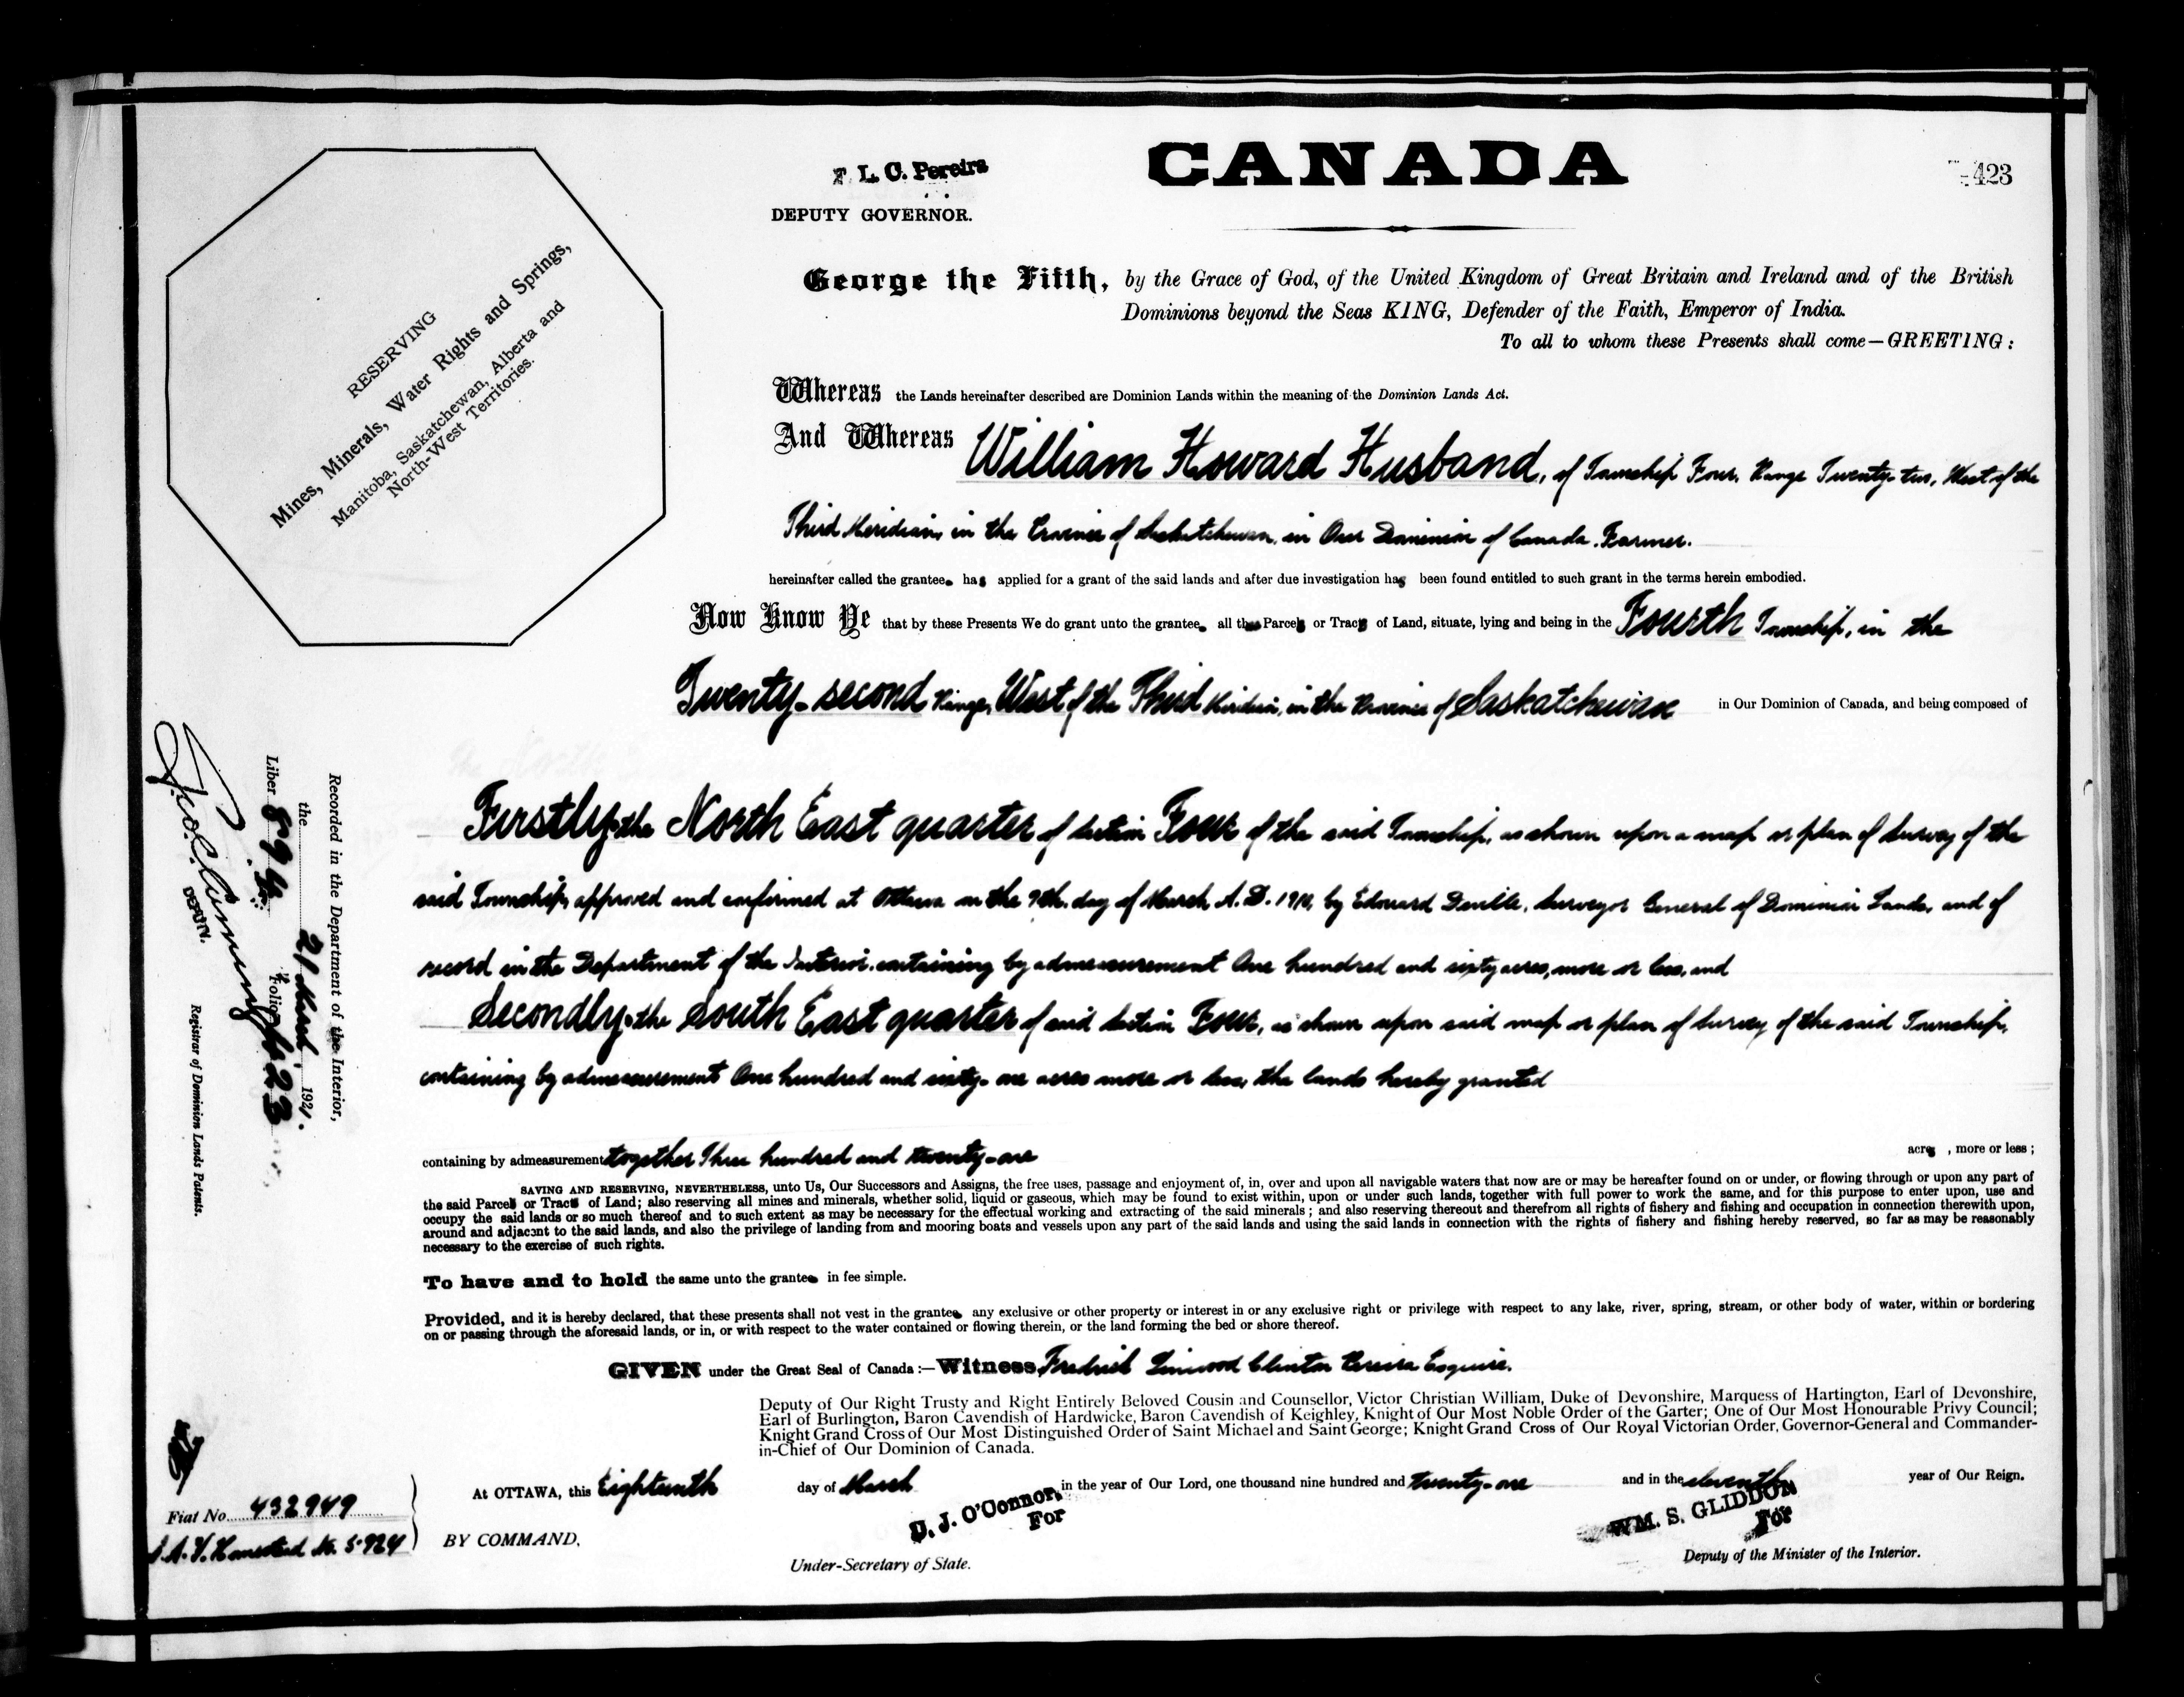 CANADA
423
F. L. C. Pereira
DEPUTY GOVERNOR.
RESERVING
Mines, Minerals, Water Rights and Springs,
Manitoba, Saskatchewan, Alberta and
North-West Territories.
George the Fifth, by the Grace of God, of the United Kingdom of Great Britain and Ireland and of the British
Dominions beyond the Seas KING, Defender of the Faith, Emperor of India.
To all to whom these Presents shall come—GREETING:
Whereas the Lands hereinafter described are Dominion Lands within the meaning of the Dominion Lands Act.
And Whereas William Howard Husband, of Township Four, Range Twenty-two, West of the
Third Meridian, in the Province of Saskatchewan, in Our Dominion of Canada, Farmer.
hereinafter called the grantee has applied for a grant of the said lands and after due investigation has been found entitled to such grant in the terms herein embodied.
Now Know Ye that by these Presents We do grant unto the grantee all the Parcel or Tract of Land, situate, lying and being in the Fourth Township, in the
Twenty-second Range, West of the Third Meridian, in the Province of Saskatchewan in Our Dominion of Canada, and being composed of
Firstly: the North East quarter of Section Four of the said Township, as shown upon a map or plan of Survey of the
said Township, approved and confirmed at Ottawa on the 9th. day of March A.D. by Edouard Deville, Surveyor General of Dominion Lands, and of
record in the Department of the Interior, containing by admeasurement One hundred and sixty acres, more or less, and
Secondly: the South East quarter of said Section Four, as shown upon said map or plan of Survey of the said Township,
containing by admeasurement One hundred and sixty-one acres more or less, the lands hereby granted
containing by admeasurement together Three hundred and twenty-one acres, more or less;
SAVING AND RESERVING, NEVERTHELESS, unto Us, Our Successors and Assigns, the free uses, passage and enjoyment of, in, over and upon all navigable waters that now are or may be hereafter found on or under, or flowing through or upon any part of
the said Parcel or Tract of Land; also reserving all mines and minerals, whether solid, liquid or gaseous, which may be found to exist within, upon or under such lands, together with full power to work the same, and for this purpose to enter upon, use and
occupy the said lands or so much thereof and to such extent as may be necessary for the effectual working and extracting of the said minerals; and also reserving thereout and therefrom all rights of fishery and fishing and occupation in connection therewith upon,
around and adjacent to the said lands, and also the privilege of landing from and mooring boats and vessels upon any part of the said lands and using the said lands in connection with the rights of fishery and fishing hereby reserved, so far as may be reasonably
necessary to the exercise of such rights.
To have and to hold the same unto the grantee in fee simple.
Provided, and it is hereby declared, that these presents shall not vest in the grantee any exclusive or other property or interest in or any exclusive right or privilege with respect to any lake, river, spring, stream, or other body of water, within or bordering
on or passing through the aforesaid lands, or in, or with respect to the water contained or flowing therein, or the land forming the bed or shore thereof.
GIVEN under the Great Seal of Canada:—Witness Fredrick Linwood Clinton Pereira Esquire,
Deputy of Our Right Trusty and Right Entirely Beloved Cousin and Counsellor, Victor Christian William, Duke of Devonshire, Marquess of Hartington, Earl of Devonshire,
Earl of Burlington, Baron Cavendish of Hardwicke, Baron Cavendish of Keighley, Knight of Our Most Noble Order of the Garter; One of Our Most Honourable Privy Council;
Knight Grand Cross of Our Most Distinguished Order of Saint Michael and Saint George; Knight Grand Cross of Our Royal Victorian Order, Governor-General and Commander-
in-Chief of Our Dominion of Canada.
At OTTAWA, this Eighteenth day of March in the year of Our Lord, one thousand nine hundred and twenty-one and in the eleventh year of Our Reign.
BY COMMAND,
D. J. O'Connor,
For
Under-Secretary of State.
WM. S. GLIDDON
For
Deputy of the Minister of the Interior.
Fiat No. 432949
Homestead No. 5924
Recorded in the Department of the Interior,
the 21 March 1921.
Liber 894 Folio 423
DEPUTY.
Registrar of Dominion Lands Patents.